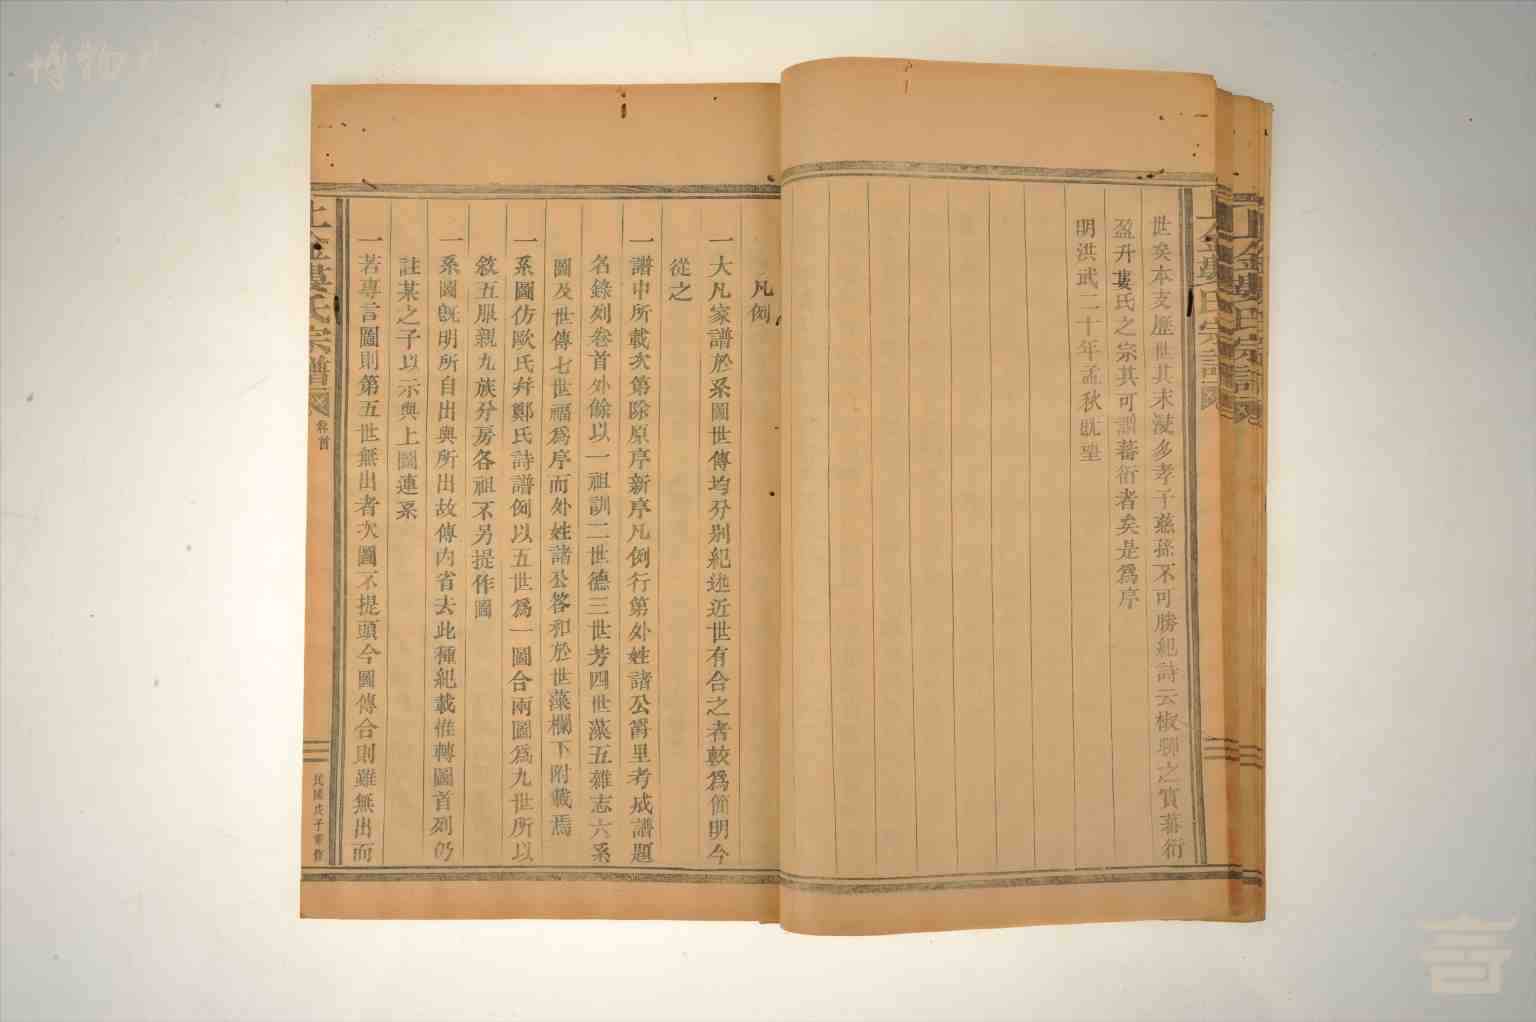 世矣本支歷世其末浸多孝子慈孫不可勝紀詩云椒聊之實蕃衍
盈升婁氏之宗其可謂蕃衍者矣是爲序
明洪武二十年孟秋既望
凡例
一大凡家譜於系圖世傳均分別紀述近世有合之者較爲簡明今
從之
一譜中所載次第除原序新序凡例行第外姓諸公爵里考成譜題
名錄列卷首外餘以一祖訓二世德三世芳四世藻五雜志六系
圖及世傳七世福爲序而外姓諸公答和於世藻欄下附載焉
一系圖仿歐氏幷鄭氏詩譜例以五世爲一圖合兩圖爲九世所以
敘五服親九族分房各祖不另提作圖
一系圖既明所自出與所出故傳內省去此種紀載惟轉圖首列仍
註某之子以示與上圖連系
一若專言圖則第五世無出者次圖不提頭今圖傳合則雖無出而
上金婁氏宗譜
卷首
民國戊子重修
博物